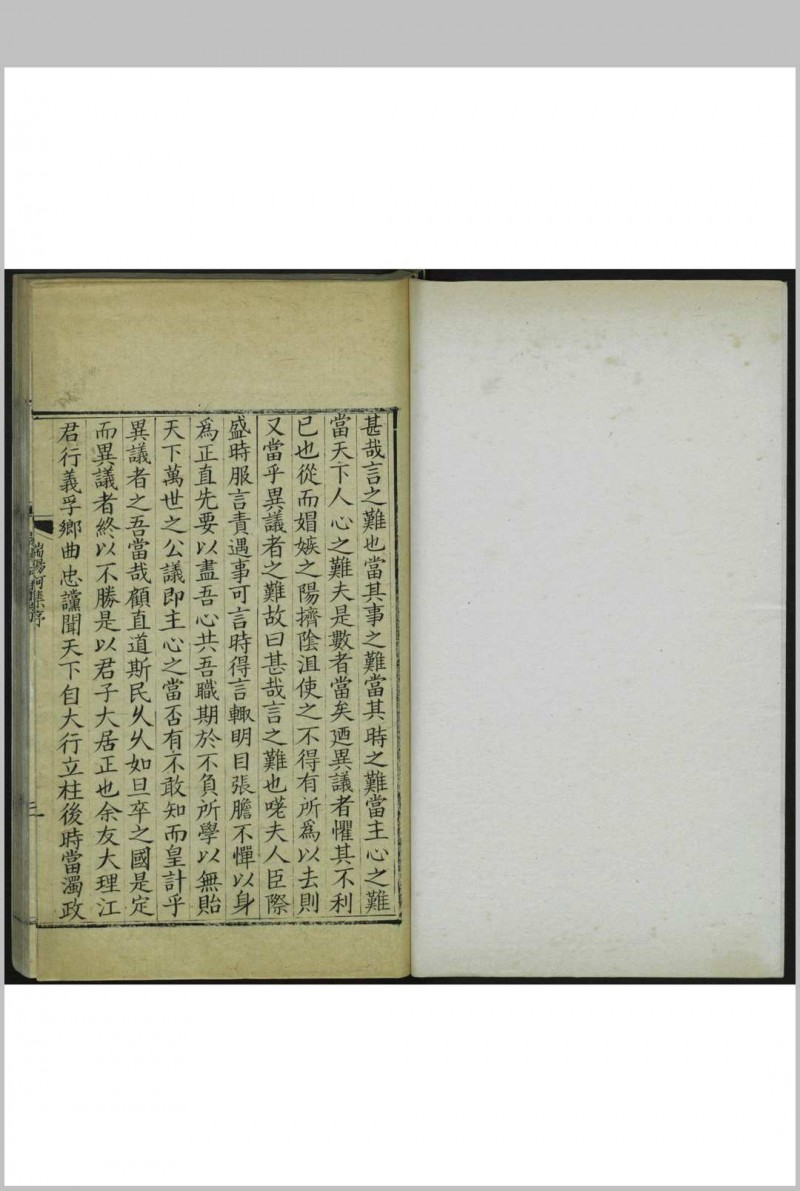 甚哉言之難也當其事之難當其時之難當主心之難
當天下人心之難夫是數者當矣廼異議者懼其不利
已也從而媢嫉之陽擠陰沮使之不得有所爲以去則
又當乎異議者之難故曰甚哉言之難也嗟夫人臣際
盛時服言責遇事可言時得言輙明目張膽不憚以身
爲正直先要以盡吾心共吾職期於不負所學以無貽
天下萬世之公議即主心之當否有不敢知而皇計乎
異議者之吾當哉顧直道斯民乆乆如旦卒之國是定
而異議者終以不勝是以君子大居正也余友大理江
君行義孚鄉曲忠讜聞天下自大行立柱後時當濁政
集序